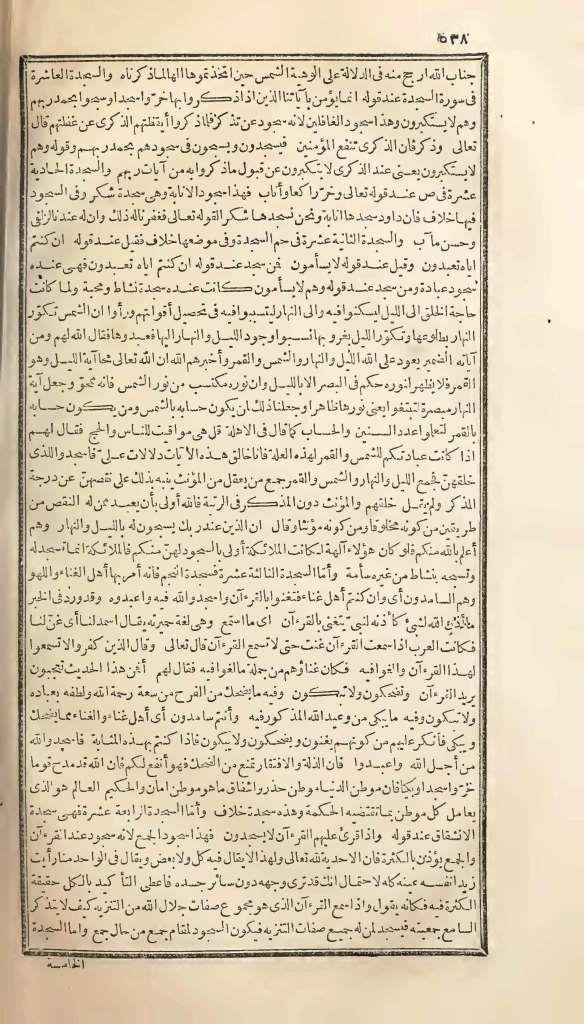 ٥٣٨
جناب الله ارجح منه فى الدلالة على الوهة الشمس حين اتخذتموها الها لما ذكرناه والسجدة العاشرة
فى سورة السجدة عند قوله انما يؤمن بآياتنا الذين اذا ذكروا بها خروا سجدا وسبحوا بحمد ربهم
وهم لا يستكبرون وهذا سجود الغافلين لانه سجود عن تذكر فلما ذكروا أيقظتهم الذكرى عن غفلتهم قال
تعالى وذكر فان الذكرى تنفع المؤمنين فيسجدون ويسبحون فى سجودهم بحمد ربهم وقوله وهم
لا يستكبرون يعنى عند الذكرى لا يتكبرون عن قبول ما ذكروا به من آيات ربهم والسجدة الحادية
عشرة فى ص عند قوله تعالى وخر راكعا وأناب فهذا سجود الانابة وهى سجدة شكر وفى السجود
فيها خلاف فان داود سجدها انابة ونحن نسجدها شكرا لقوله تعالى فغفرنا له ذلك وان له عندنا لزلفى
وحسن مآب والسجدة الثانية عشرة فى حم السجدة وفى موضعها خلاف فقيل عند قوله ان كنتم
اياه تعبدون وقيل عند قوله لا يسأمون فمن سجد عند قوله ان كنتم اياه تعبدون فهى عنده
سجود عبادة ومن سجد عند قوله وهم لا يسأمون كانت عنده سجدة نشاط ومحبة ولما كانت
حاجة الخلق الى الليل ليسكنوا فيه والى النهار ليتسببوا فيه فى تحصيل أقواتهم ورأوا ان الشمس تكوّر
النهار بطلوعها وتكوّر الليل بغروبها نسبوا وجود الليل والنهار اليها فعبدوها فقال الله لهم ومن
آياته الضمير يعود على الله الليل والنهار والشمس والقمر وأخبرهم الله ان الله تعالى محا آية الليل وهو
القمر فلا يظهر لنوره حكم فى البصر الا بالليل وان نوره مكتسب من نور الشمس فانه محق وجعل آية
النهار مبصرة لتبتغوا يعنى نورها ظاهرا وجعلنا ذلك لمن يكون حسابه بالشمس ومن يكون حسابه
بالقمر لتعلموا عدد السنين والحساب كما قال فى الاهلة قل هى مواقيت للناس والحج فقال لهم
اذا كانت عبادتكم للشمس والقمر لهذه العلة فانا خالق هذه الآيات دلالات علىّ فاسجدوا للذى
خلقهنّ فجمع الليل والنهار والشمس والقمر جمع من يعقل من المؤنث ينبه بذلك على نقصهنّ عن درجة
المذكر ولم يقل خلقهم والمؤنث دون المذكر فى الرتبة فالله أولى بأن يعبد ممن له النقص من
طريقتين من كونه مخلوقا ومن كونه مؤنثا وقال ان الذين عند ربك يسبحون له بالليل والنهار وهم
أعلم بالله منكم فلو كان هؤلاء آلهة لكانت الملائكة أولى بالسجود لهنّ منكم فالملائكة انما تسجد له
وتسبحه بنشاط من غير سأمة وأمّا السجدة الثالثة عشرة فسجدة النجم فانه أمر بها أهل الغناء واللهو
وهم السامدون أى وان كنتم أهل غناء فتغنوا بالقرءآن واسجدوا لله فيه واعبدوه وقد ورد فى الخبر
ما أذن الله لشىء كأذنه لنبى يتغنى بالقرءآن اى ما استمع وهى لغة حميرية يقال اسمد لنا أى غنّ لنا
فكانت العرب اذا سمعت القرءآن غنت حتى لا تسمع القرءآن قال تعالى وقال الذين كفروا لا تسمعوا
لهذا القرءآن والغوا فيه فكان غناؤهم من جملة ما لغوا فيه فقال لهم أفمن هذا الحديث تعجبون
يريد القرءآن وتضحكون ولا تبكون وفيه ما يضحك من الفرح من سعة رحمة الله ولطفه بعباده
ولا تبكون وفيه ما يبكى من وعيد الله المذكور فيه وأنتم سامدون أى أهل غناء والغناء مما يضحك
ويبكى فأنكر عليهم من كونهم يغنون ويضحكون ولا يبكون فاذا كنتم بهذه المثابة فاسجدوا لله
من أجل الله واعبدوا فان الذلة والافتقار تمنع من الضحك فهو أنفع لكم فان الله قد مدح قوما
خروا سجدا وبكيا فان موطن الدنيا موطن حذر واشفاق ما هو موطن امان والحكيم العالم هو الذى
يعامل كل موطن بما تقتضيه الحكمة وهذه سجدة خلاف وأمّا السجدة الرابعة عشرة فهى سجدة
الانشقاق عند قوله واذا قرئ عليهم القرءآن لا يسجدون فهذا سجود الجمع لانه سجود عند القرءآن
والجمع يؤذن بالكثرة فان الاحدية لله تعالى ولهذا لا يقال فيه كل ولا بعض ويقال فى الواحد منا رأيت
زيدا نفسه عينه كله لاحتمال انك قد ترى وجهه دون سائر جسده فاعطى التأكيد بالكل حقيقة
الكثرة فيه فكأنه يقول واذا سمع القرءآن الذى هو مجموع صفات جلال الله من التنزيه كيف لا يتذكر
السامع جمعيته فيسجد لمن له جميع صفات التنزيه فيكون السجود لمقام جمع من حال جمع واما السجدة
الخامسة